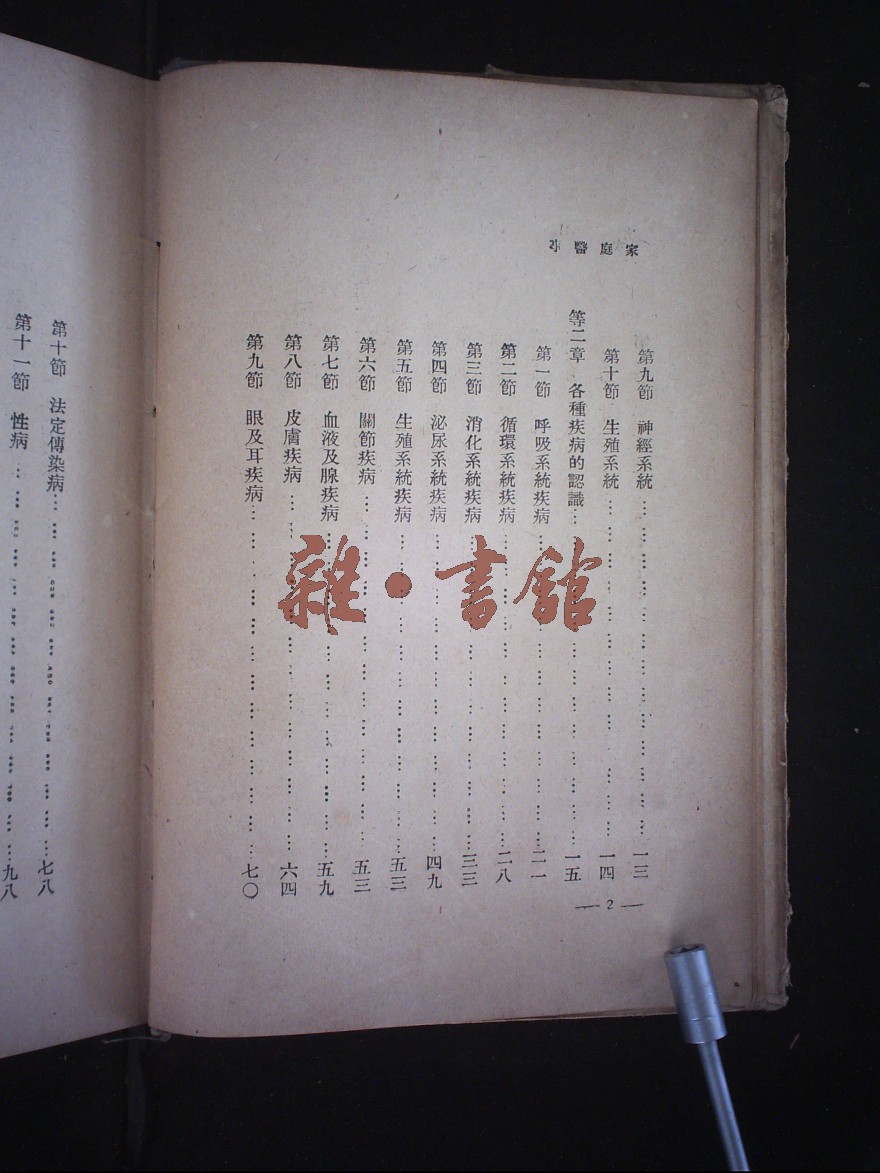 家庭醫
第九節 神經系統……一三
第十節 生殖系統……一四
等二章 各種疾病的認識……一五
第一節 呼吸系統疾病……二一
第二節 循環系統疾病……二八
第三節 消化系統疾病……三三
第四節 泌尿系統疾病……四九
第五節 生殖系統疾病……五三
第六節 關節疾病……五三
第七節 血液及腺疾病……五九
第八節 皮膚疾病……六四
第九節 眼及耳疾病……七〇
— 2 —
第十節 法定傳染病……七八
第十一節 性病……九八
雜·書館